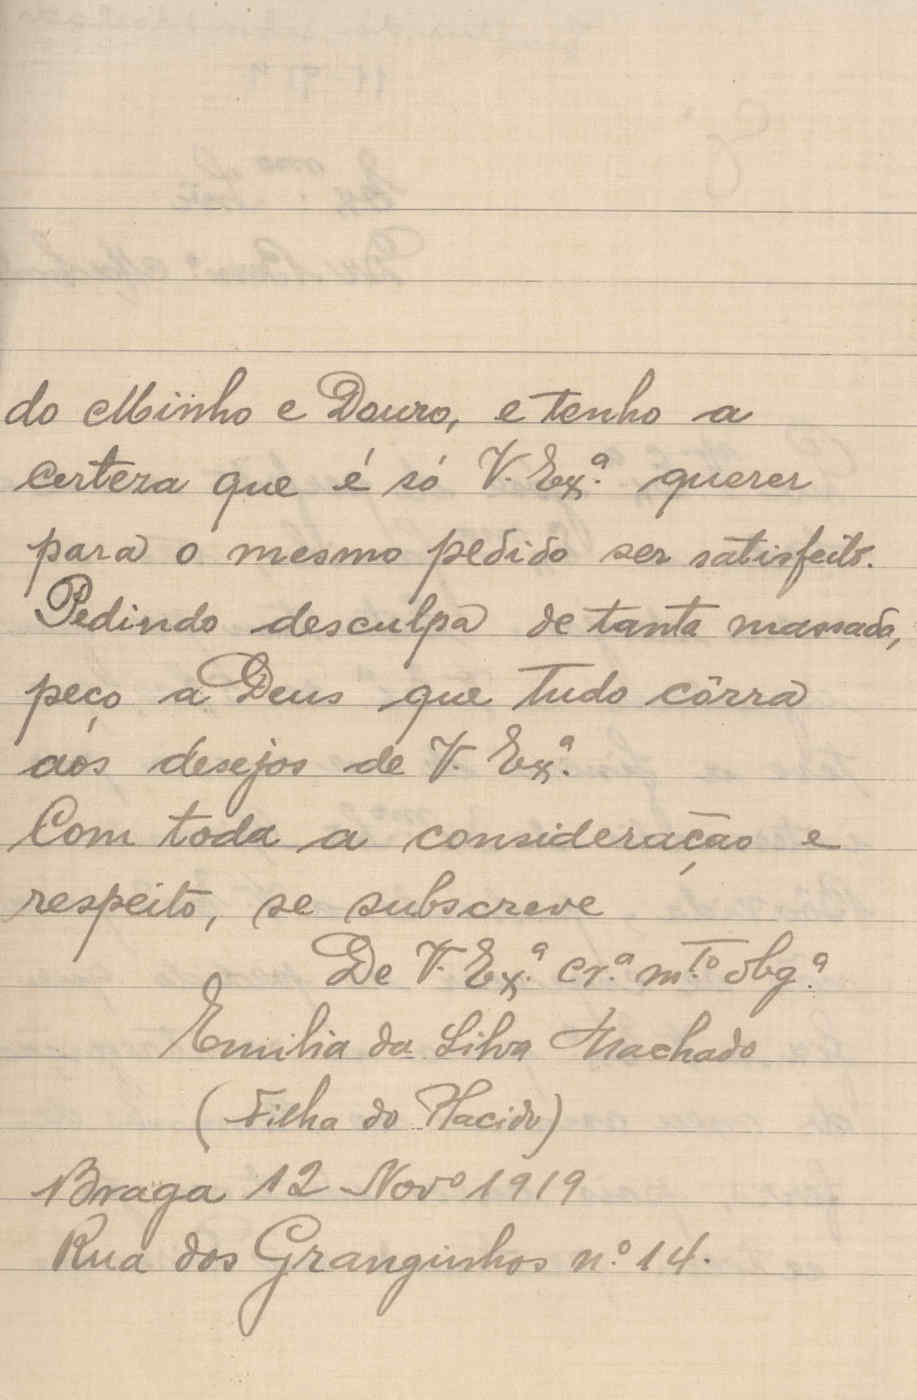 do Minho e Douro, e tenho a
certeza que é só V. Ex.ª querer
para o mesmo pedido ser satisfeito.
Pedindo desculpa de tanta massada,
peço a Deus que tudo côrra
aós desejos de V. Ex.ª
Com toda a consideração e
respeito, se subscreve
De V. Ex.ª cr.ª m.to obg.ª
Emilia da Silva Machado
(Filha do Placido)
Braga 12 Novo 1919
Rua dos Granginhos n.º 14.